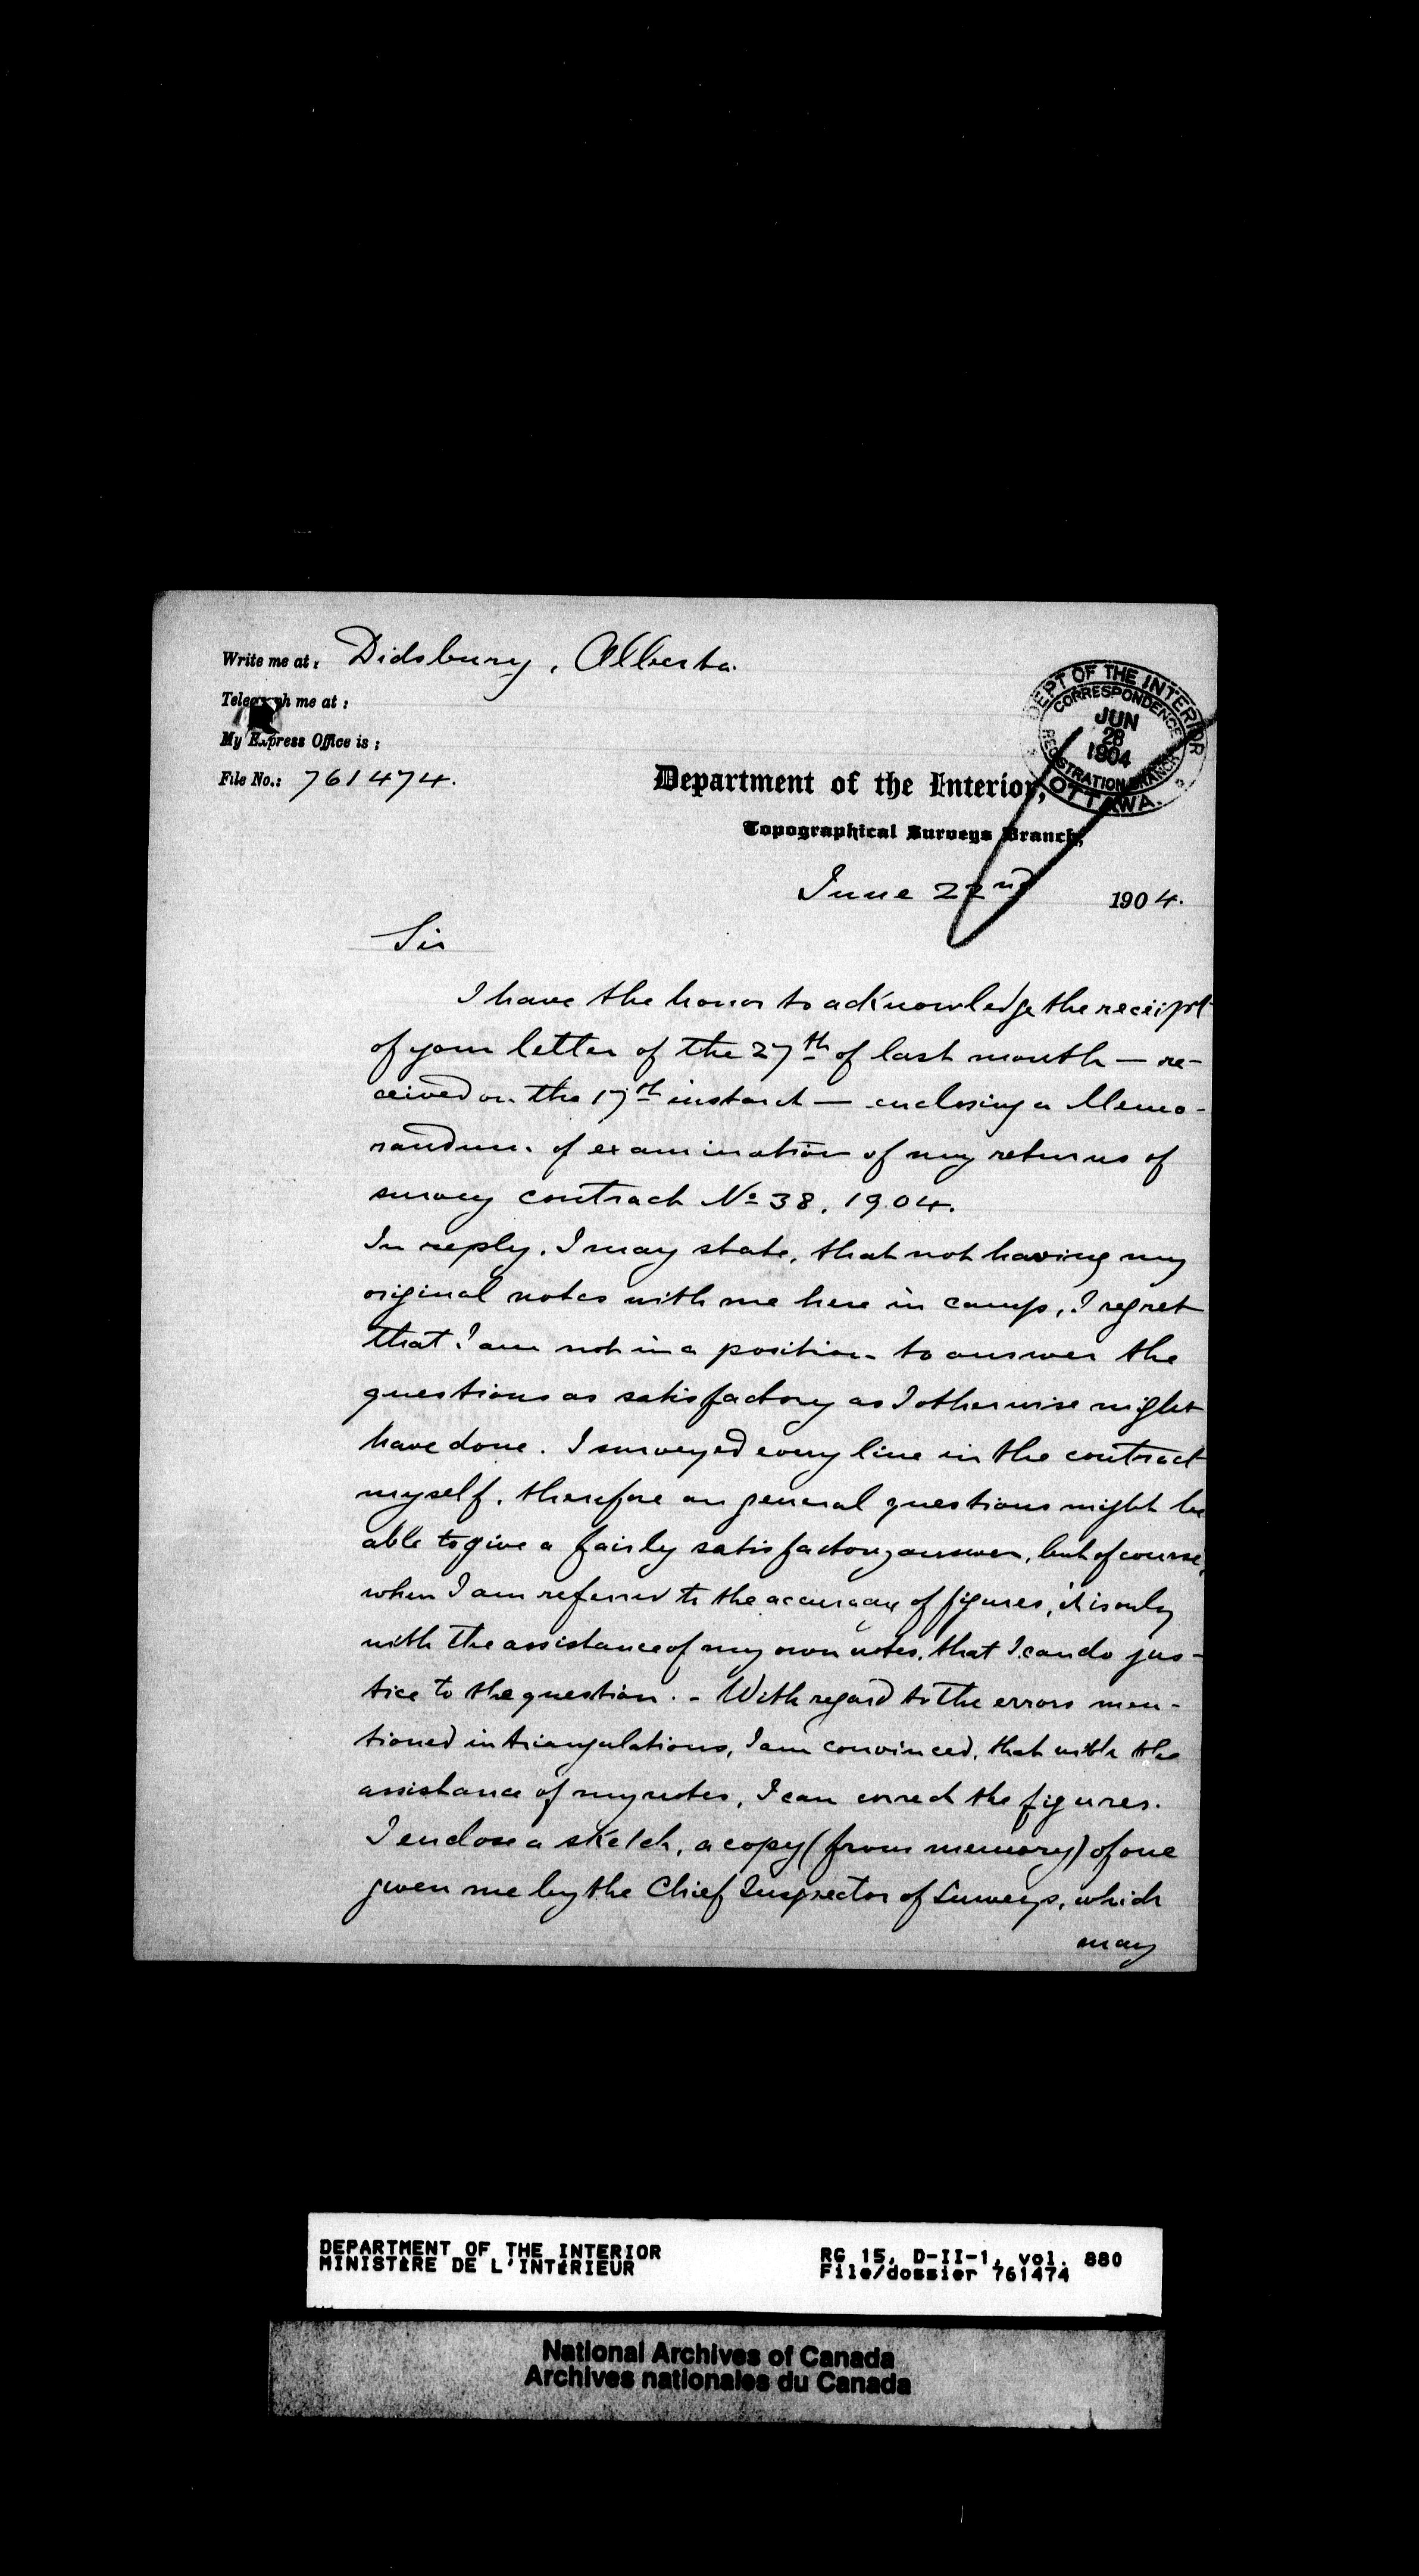 Write me at: Didsbury, Alberta.
Telegraph me at:
My Express Office is:
File No.: 761474.
DEPT OF THE INTERIOR
CORRESPONDENCE
JUN
28
1904
REGISTRATION BRANCH
OTTAWA.
Department of the Interior,
Topographical Surveys Branch,
June 22nd 1904.
Sir
I have the honor to acknowledge the receipt
of your letter of the 27th of last month — re-
ceived on the 17th instant — enclosing a Memo-
randum of examination of my returns of
survey contract No 38, 1904.
In reply, I may state, that not having my
original notes with me here in camp, I regret
that I am not in a position to answer the
questions as satisfactory as I otherwise might
have done. I surveyed every line in the contract
myself, therefore on general questions might be
able to give a fairly satisfactory answer, but of course,
when I am referred to the accuracy of figures, it is only
with the assistance of my own notes, that I can do jus-
tice to the question. - With regard to the errors men-
tioned in triangulations, I am convinced, that with the
assistance of my notes, I can correct the figures.
I enclose a sketch, a copy (from memory) of one
given me by the Chief Inspector of Surveys, which
may
DEPARTMENT OF THE INTERIOR RG 15, D-II-1, vol. 880
MINISTÈRE DE L'INTÉRIEUR File/dossier 761474
National Archives of Canada
Archives nationales du Canada